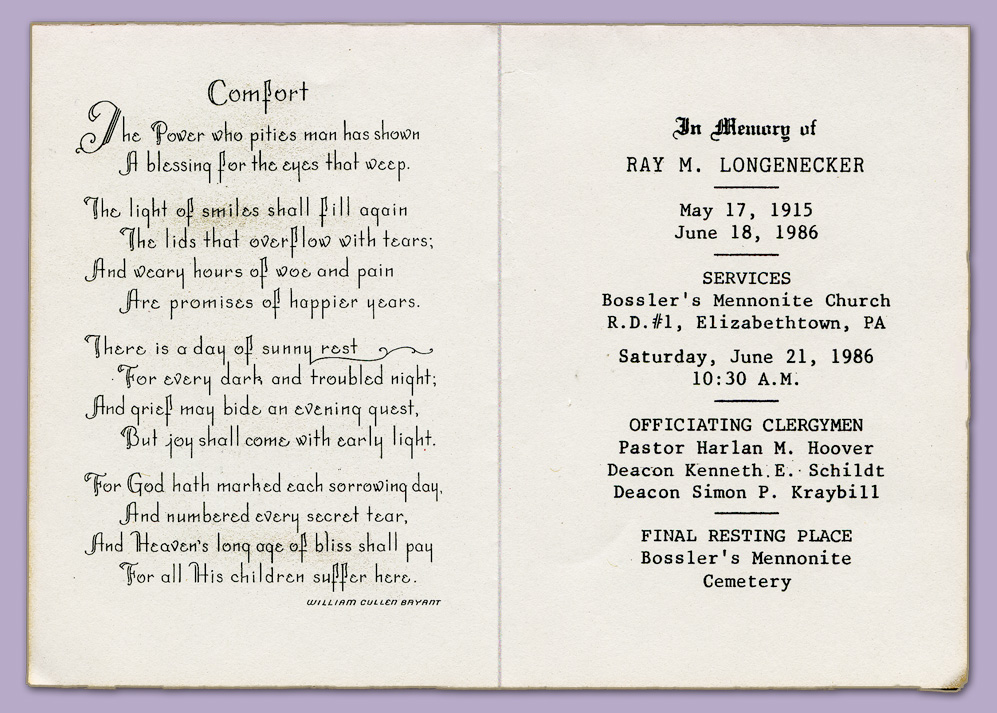 Comfort
The Power who pities man has shown
A blessing for the eyes that weep.
The light of smiles shall fill again
The lids that overflow with tears;
And weary hours of woe and pain
Are promises of happier years.
There is a day of sunny rest
For every dark and troubled night;
And grief may bide an evening guest,
But joy shall come with early light.
For God hath marked each sorrowing day,
And numbered every secret tear,
And Heaven's long age of bliss shall pay
For all His children suffer here.
WILLIAM CULLEN BRYANT
In Memory of
RAY M. LONGENECKER
May 17, 1915
June 18, 1986
SERVICES
Bossler's Mennonite Church
R.D.#1, Elizabethtown, PA
Saturday, June 21, 1986
10:30 A.M.
OFFICIATING CLERGYMEN
Pastor Harlan M. Hoover
Deacon Kenneth E. Schildt
Deacon Simon P. Kraybill
FINAL RESTING PLACE
Bossler's Mennonite
Cemetery